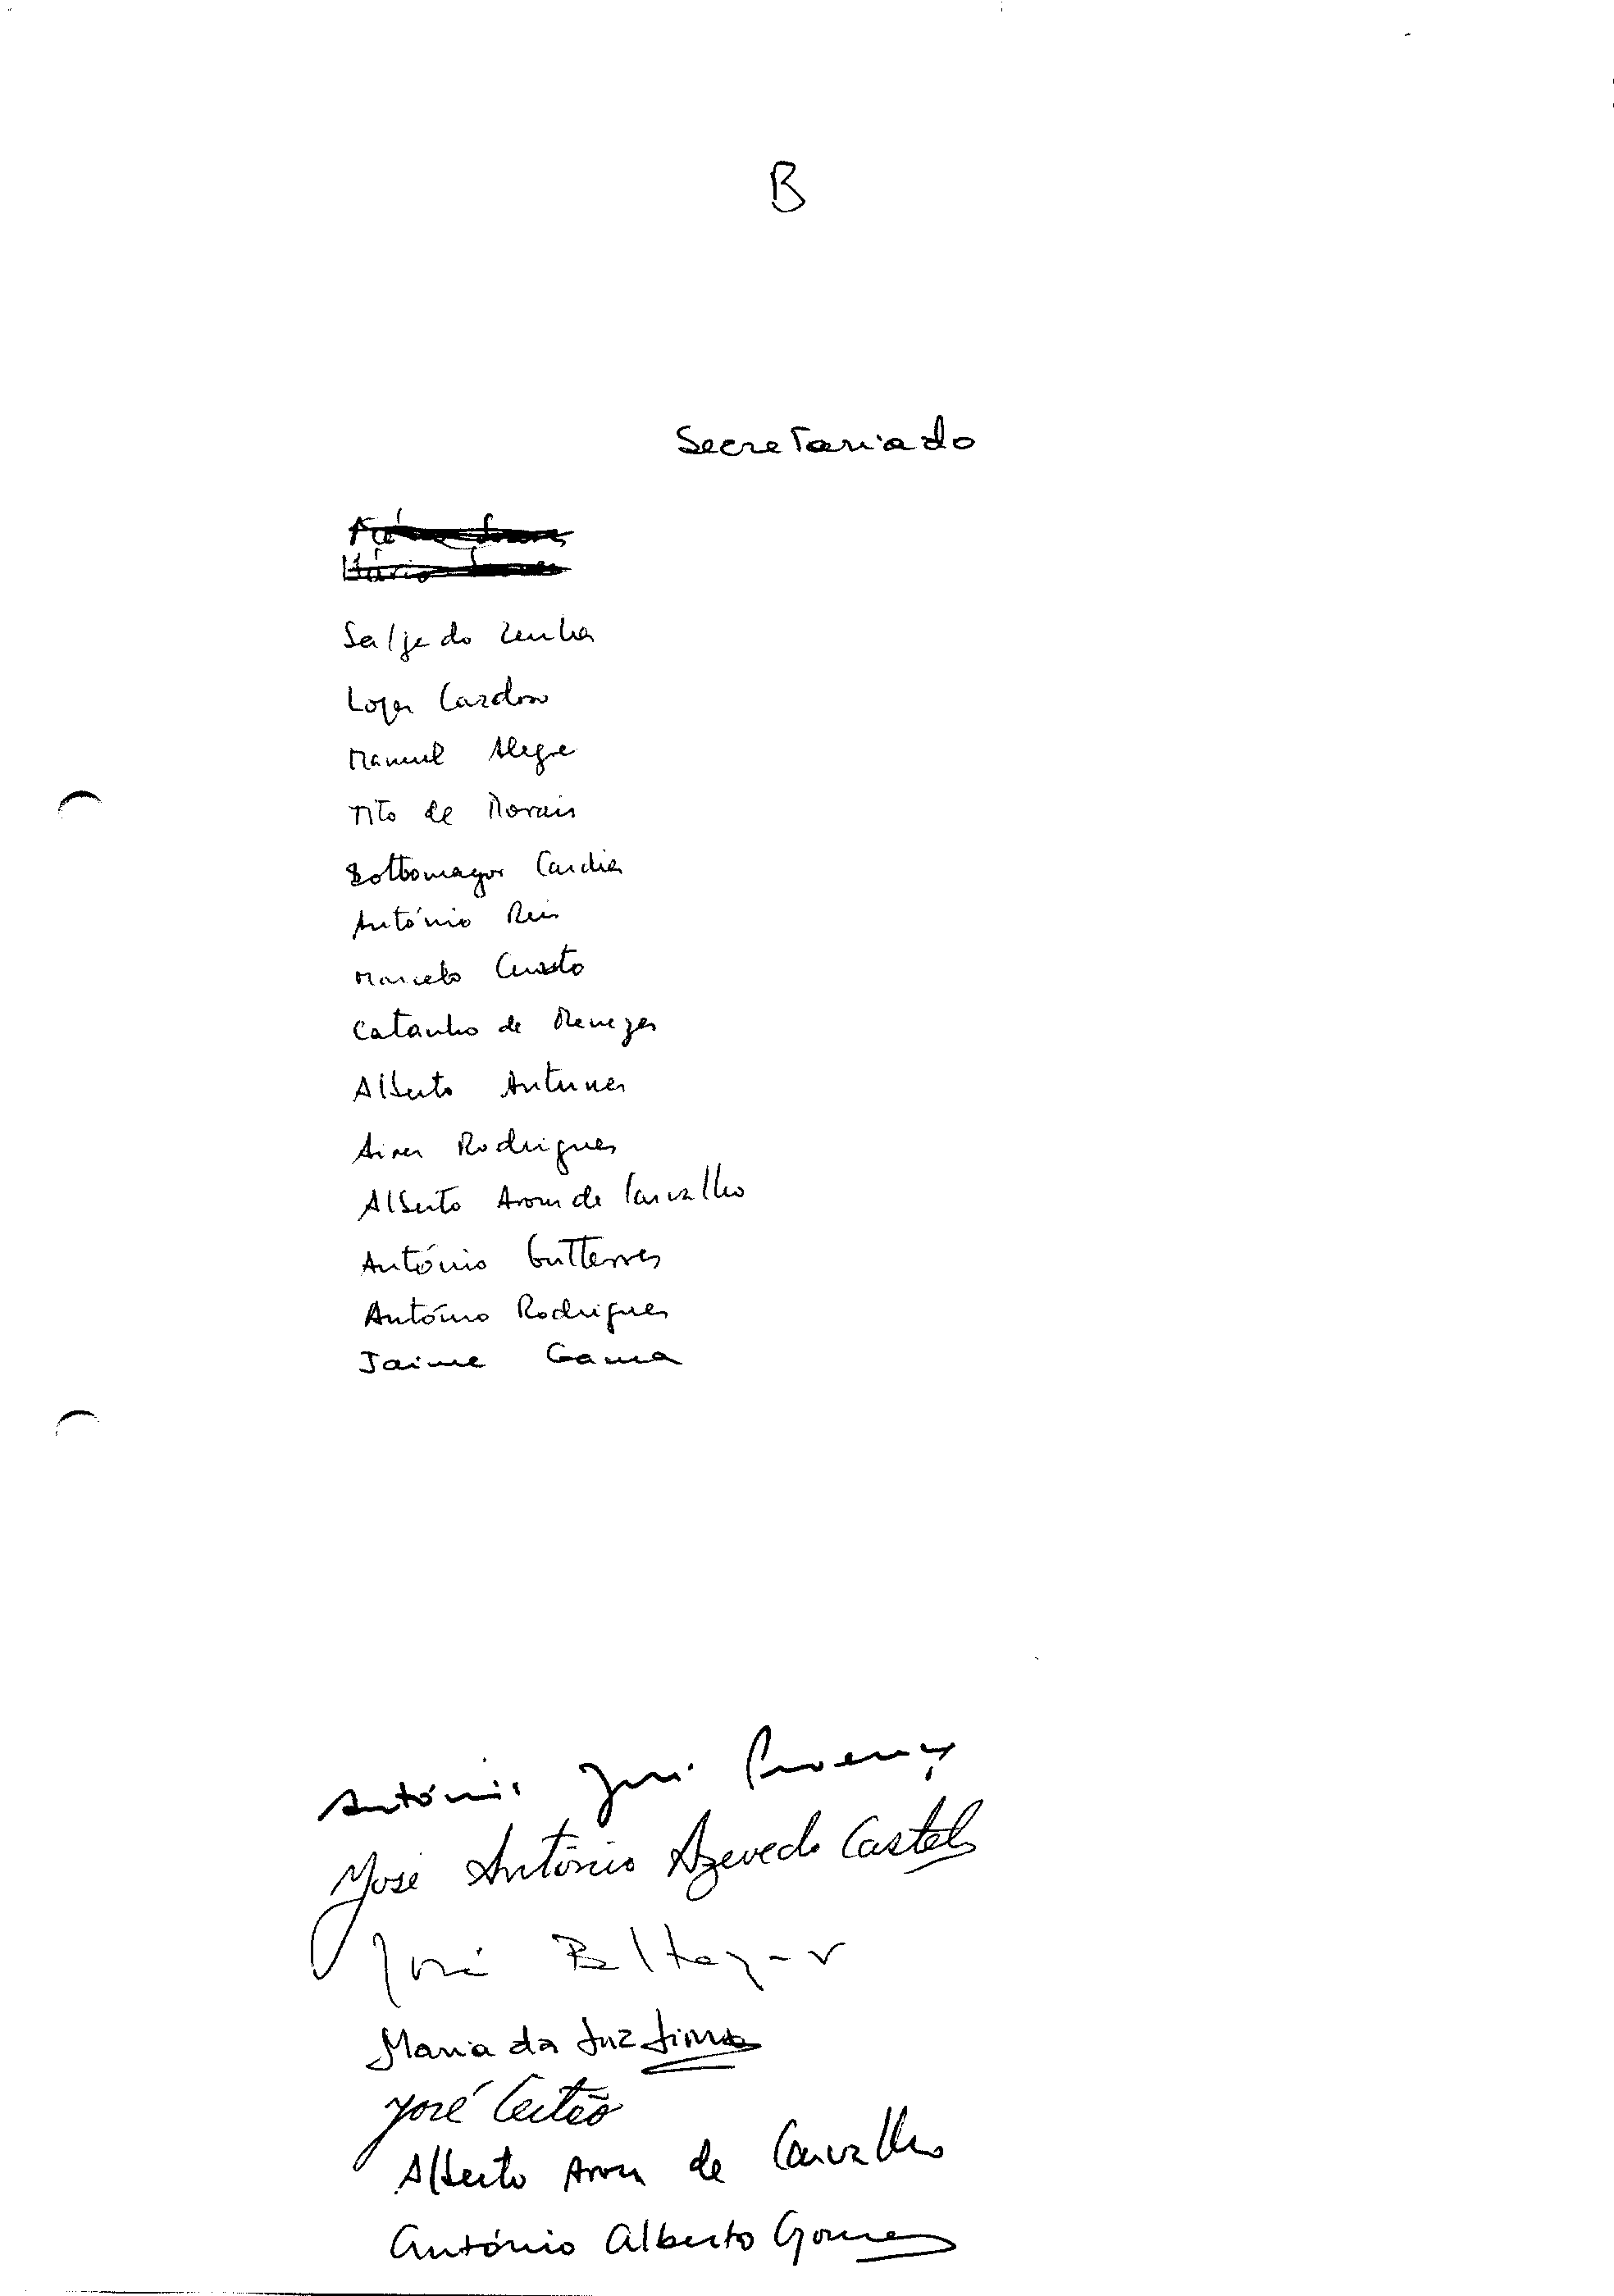 B
Secretariado
Mário Soares
Mário Soares
Salgado Zenha
Lopes Cardoso
Manuel Alegre
Tito de Morais
Sottomayor Cardia
António Reis
Marcelo Curto
Catanho de Menezes
Alberto Antunes
Aires Rodrigues
Alberto Arons de Carvalho
António Gutterres
António Rodrigues
Jaime Gama
António José Proença
José António Azevedo Castelo
José Baltazar
Maria da Luz
José Leitão
Alberto Arons de Carvalho
António Alberto Gomes